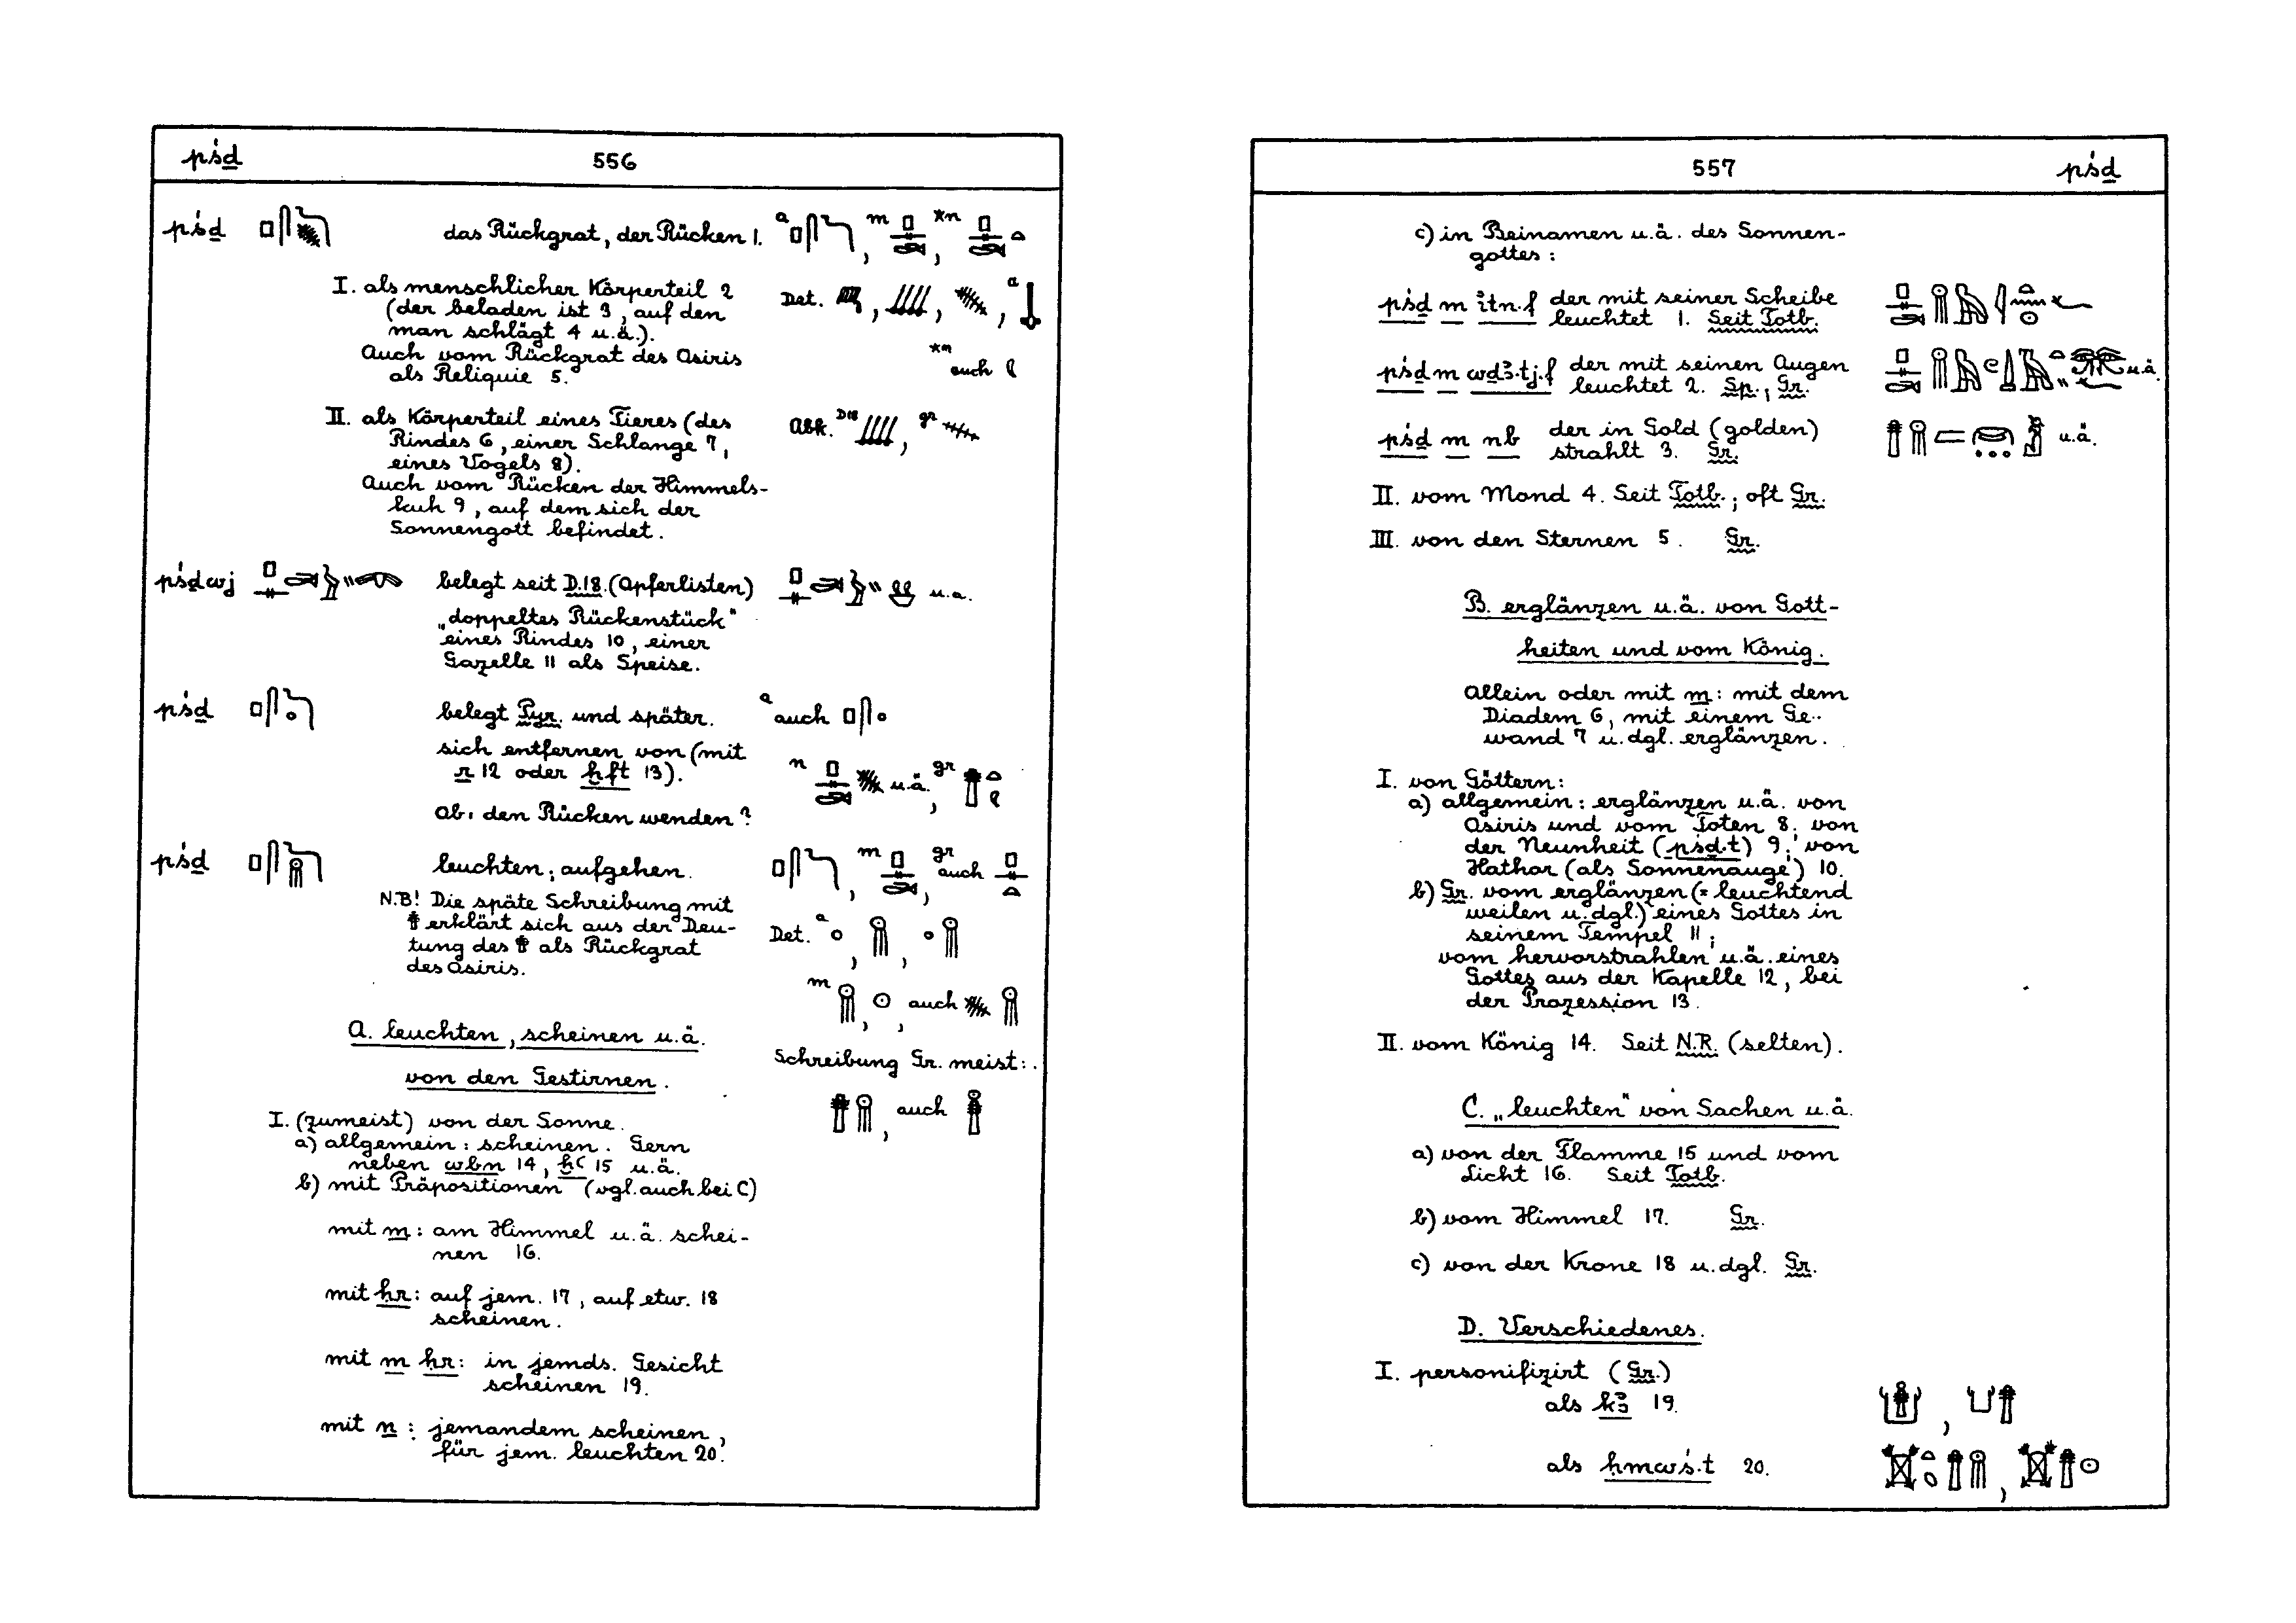 pśḏ 556
pśḏ das Rückgrat, der Rücken 1.
I. als menschlicher Körperteil 2
(der beladen ist 3, auf den
man schlägt 4 u.ä.).
Auch vom Rückgrat des Osiris
als Reliquie 5.
Det.
auch
II. als Körperteil eines Tieres (des
Rindes 6, einer Schlange 7,
eines Vogels 8).
Auch vom Rücken der Himmels-
kuh 9, auf dem sich der
Sonnengott befindet.
Abk. D18 gr
pśḏwj belegt seit D.18. (Opferlisten) u.a.
„doppeltes Rückenstück"
eines Rindes 10, einer
Gazelle 11 als Speise.
pśḏ belegt Pyr. und später. a auch
sich entfernen von (mit
r 12 oder ḫft 13).
n u.ä., gr
Ob: den Rücken wenden?
pśḏ leuchten; aufgehen. m gr auch
N.B! Die späte Schreibung mit
erklärt sich aus der Deu-
tung des als Rückgrat
des Osiris.
Det. a
m auch
A. leuchten, scheinen u.ä.
von den Gestirnen.
Schreibung Gr. meist:
auch
I. (zumeist) von der Sonne.
a) allgemein: scheinen. Gern
neben wbn 14, ḫꜥ 15 u.ä.
b) mit Präpositionen (vgl. auch bei C)
mit m: am Himmel u.ä. schei-
nen 16.
mit ḥr: auf jem. 17, auf etw. 18
scheinen.
mit m ḥr: in jemds. Gesicht
scheinen 19.
mit n: jemandem scheinen,
für jem. leuchten 20.
557 pśḏ
c) in Beinamen u.ä. des Sonnen-
gottes:
pśḏ m ỉtn.f der mit seiner Scheibe
leuchtet 1. Seit Totb.
pśḏ m wḏꜣ.tj.f der mit seinen Augen u.ä.
leuchtet 2. Sp., Gr.
pśḏ m nb der in Gold (golden) u.ä.
strahlt 3. Gr.
II. vom Mond 4. Seit Totb.; oft Gr.
III. von den Sternen 5. Gr.
B. erglänzen u.ä. von Gott-
heiten und vom König.
Allein oder mit m: mit dem
Diadem 6, mit einem Ge-
wand 7 u.dgl. erglänzen.
I. von Göttern:
a) allgemein: erglänzen u.ä. von
Osiris und vom Toten 8; von
der Neunheit (pśḏ.t) 9; von
Hathor (als Sonnenauge) 10.
b) Gr. vom erglänzen (= leuchtend
weilen u.dgl.) eines Gottes in
seinem Tempel 11;
vom hervorstrahlen u.ä. eines
Gottes aus der Kapelle 12, bei
der Prozession 13.
II. vom König 14. Seit N.R. (selten).
C. „leuchten" von Sachen u.ä.
a) von der Flamme 15 und vom
Licht 16. Seit Totb.
b) vom Himmel 17. Gr.
c) von der Krone 18 u.dgl. Gr.
D. Verschiedenes.
I. personifizirt (Gr.)
als kꜣ 19.
als ḥmwś.t 20.